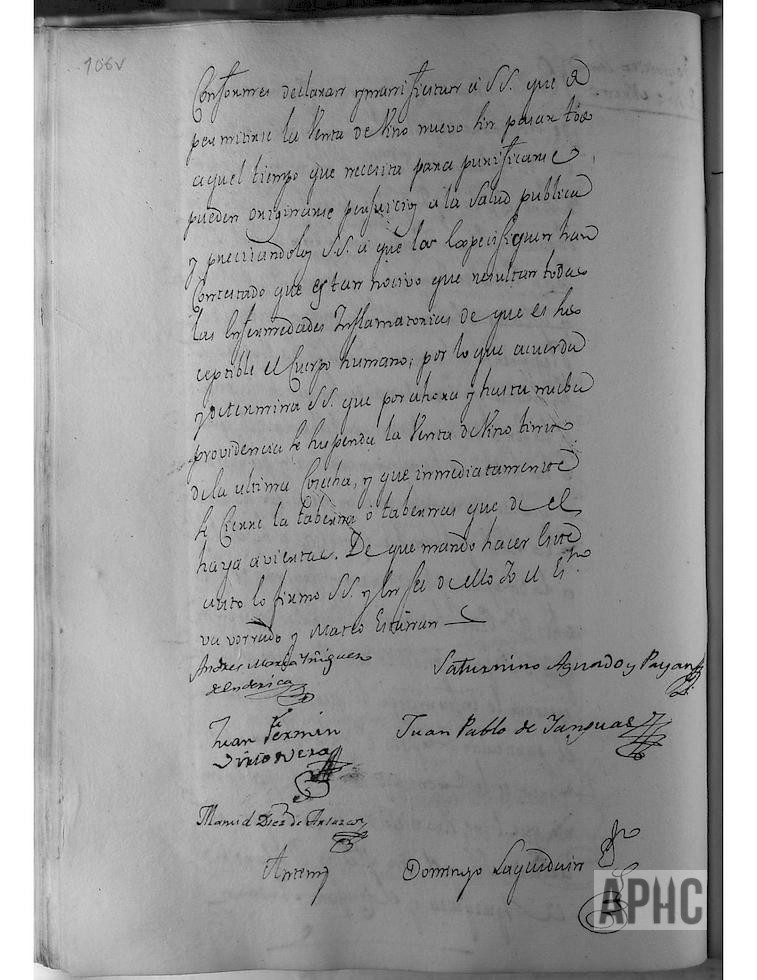 106v
Conformes declaran y manifiestan a SS. que de
permitirse la Venta de Vino nuevo sin pasar todo
aquel tiempo que necesita para purificarse,
pueden originarse perjuicios a la Salud publica
y precisandolos SS. a que los especifiquen han
Contestado que es tan nocivo que resultan todas
las Enfermedades Inflamatorias de que es sus
ceptible el Cuerpo humano; por lo que acuerda
y determina SS. que por ahora y hasta nueba
providencia se suspenda la Venta de Vino tinto
de la ultima Cosecha, y que inmediatamente
se Cierre la taberna ó tabernas que de el
haya avientas. De que mando hacer este
auto lo firmo SS. y en fee de ello Yo el Ess.no
va vorrado y Mateo Estarran
Andres Maria Iñiguez
de Enderica
Saturnino Aguado y Payan
Juan Fermin
Juan Pablo de Yanguas
Manuel Diez de
Antemi
Domingo Laguiduin
APHC